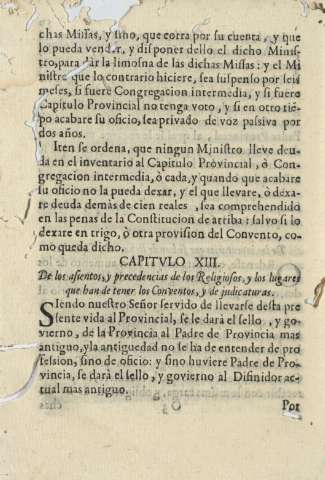 chas Missas, y sino, que corra por su cuenta, y que
lo pueda vender, y disponer dello el dicho Minis-
tro, para dar la limosna de las dichas Missas: y el Mi
nistro que lo contrario hiciere, sea suspenso por seis
meses, si fuere Congregacion intermedia, y si fuere
Capitulo Provincial no tenga voto, y si en otro tiē-
po acabare su oficio, sea privado de voz passiva por
dos años.
Iten se ordena, que ningun Ministro lleve deu-
da en el inventario al Capitulo Provincial, ò Con-
gregacion intermedia, ò cada, y quando que acabare
su oficio no la pueda dexar, y el que llevare, ò dexa-
re deuda demàs de cien reales, sea comprehendido
en las penas de la Constitucion de arriba: salvo si lo
dexare en trigo, ò otra provision del Convento, co-
mo queda dicho.
CAPITVLO XIII.
De los asientos, y precedencias de los Religiosos, y los lugares
que han de tener los Conventos, y de judicaturas.
SIendo nuestro Señor servido de llevarse desta pre
sente vida al Provincial, se le darà el sello, y go-
vierno, de la Provincia al Padre de Provincia mas
antiguo, y la antiguedad no se ha de entender de pro
fession, sino de oficio: y sino huviere Padre de Pro-
vincia, se darà el sello, y govierno al Difinidor ac-
tual mas antiguo.
Por